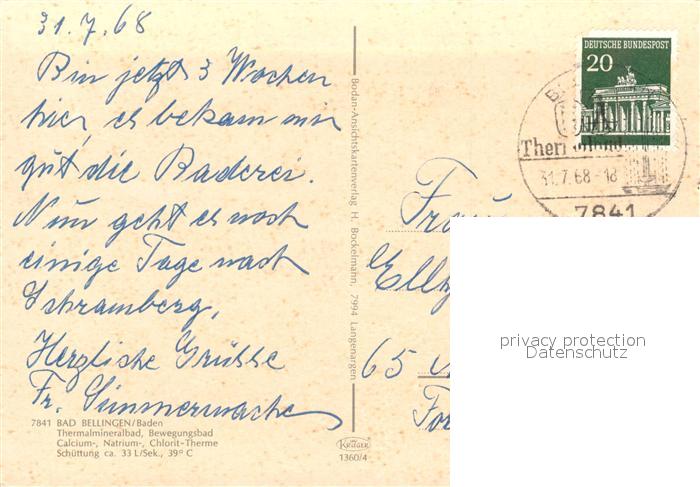 31.7.68
Bin jetzt 3 Wochen
hier, es bekam mir
gut die Baderei.
Nun geht es noch
einige Tage nach
Schramberg,
Herzliche Grüsse
Fr.
7841 BAD BELLINGEN/Baden
Thermalmineralbad, Bewegungsbad
Calcium-, Natrium-, Chlorit-Therme
Schüttung ca. 33 L/Sek., 39° C
Bodan-Ansichtskartenverlag H. Bockelmann, 7994 Langenargen
KRÜGER
1360/4
DEUTSCHE BUNDESPOST
20
31.7.68-18
7841
Frau
65
privacy protection
Datenschutz